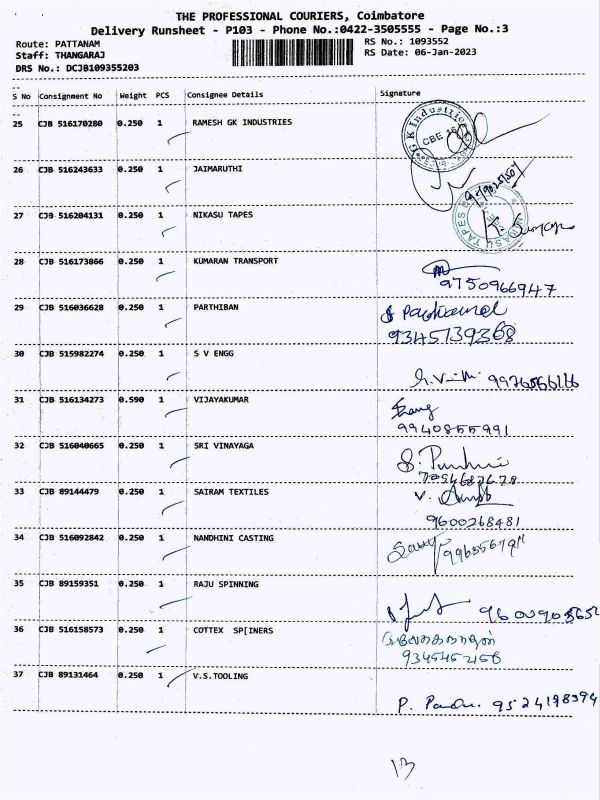 THE PROFESSIONAL COURIERS, Coimbatore
Delivery Runsheet - P103 - Phone No.:0422-3505555 - Page No.:3
Route: PATTANAM RS No.: 1093552
Staff: THANGARAJ RS Date: 06-Jan-2023
DRS No.: DCJB109355203
S No Consignment No Weight PCS Consignee Details Signature
25 CJB 516170280 0.250 1 RAMESH GK INDUSTRIES
G K Industries CBE 16
26 CJB 516243633 0.250 1 JAIMARUTHI
27 CJB 516204131 0.250 1 NIKASU TAPES
NIKASU TAPES
28 CJB 516173866 0.250 1 KUMARAN TRANSPORT
9750966947
29 CJB 516036628 0.250 1 PARTHIBAN
9345739368
30 CJB 515982274 0.250 1 S V ENGG
31 CJB 516134273 0.590 1 VIJAYAKUMAR
9940855991
32 CJB 516040665 0.250 1 SRI VINAYAGA
33 CJB 89144479 0.250 1 SAIRAM TEXTILES
9600268481
34 CJB 516092842 0.250 1 NANDHINI CASTING
35 CJB 89159351 0.250 1 RAJU SPINNING
36 CJB 516158573 0.250 1 COTTEX SP[INERS
37 CJB 89131464 0.250 1 V.S.TOOLING
9524198394
13